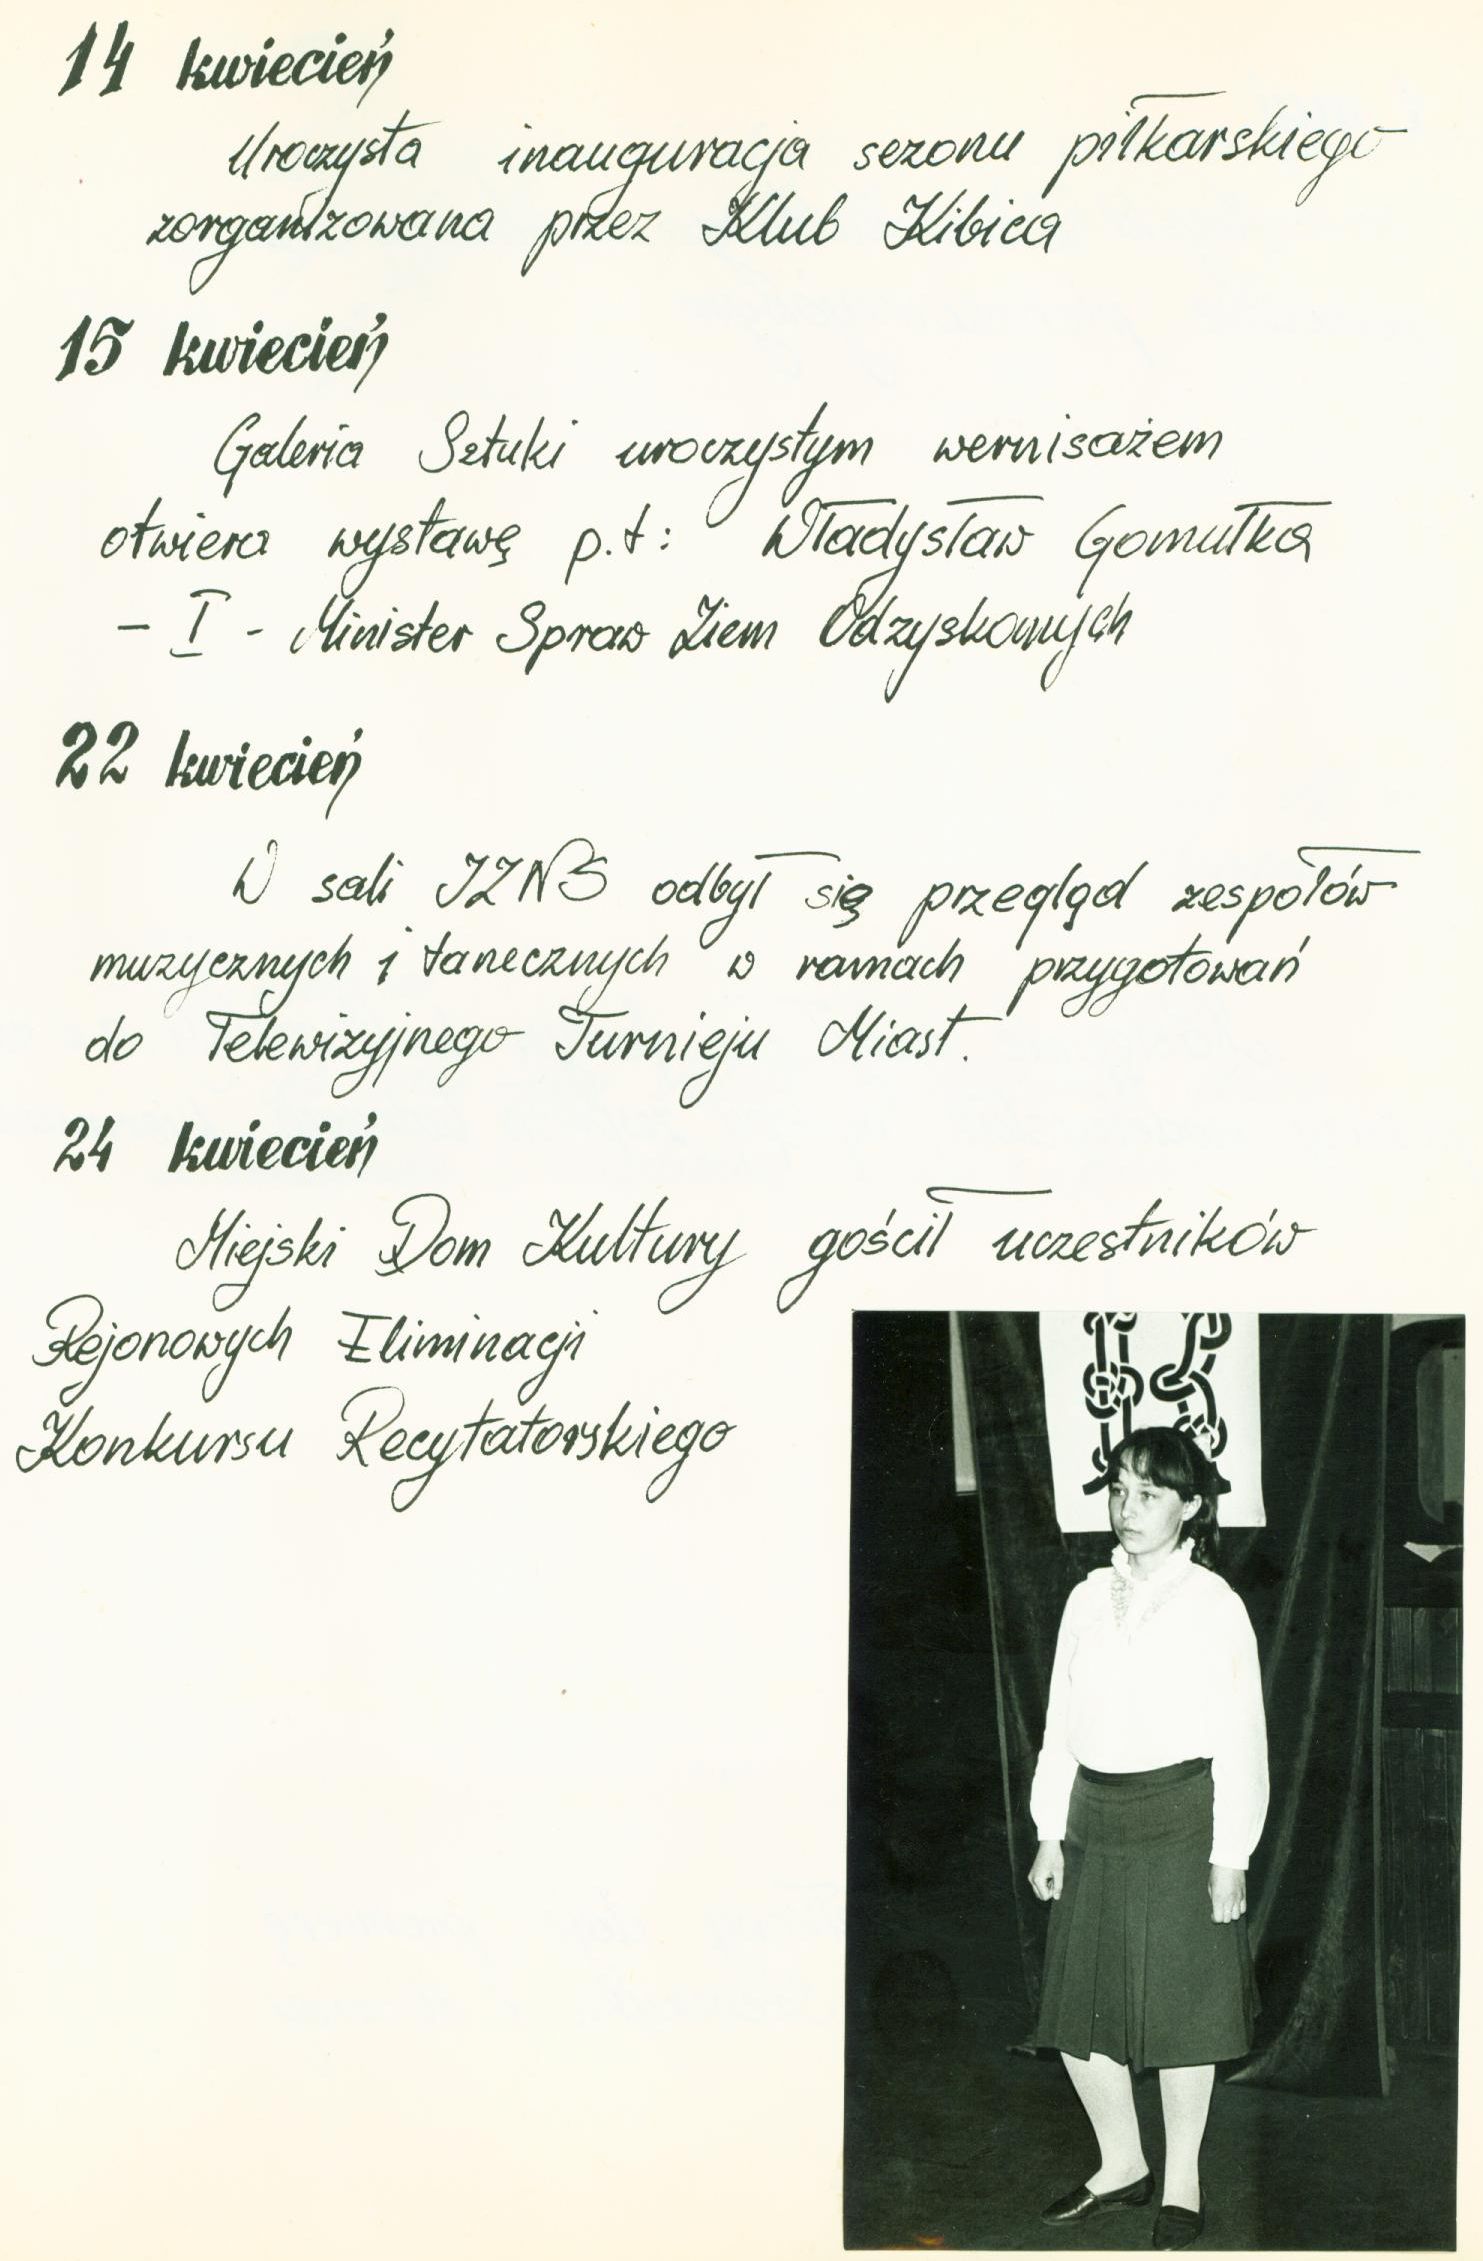 14 kwiecień
Uroczysta inauguracja sezonu piłkarskiego
zorganizowana przez Klub Kibica
15 kwiecień
Galeria Sztuki uroczystym wernisażem
otwiera wystawę p.t: Władysław Gomułka
– I - Minister Spraw Ziem Odzyskanych
22 kwiecień
W sali IZNS odbył się przegląd zespołów
muzycznych i tanecznych w ramach przygotowań
do Telewizyjnego Turnieju Miast.
24 kwiecień
Miejski Dom Kultury gościł uczestników
Rejonowych Eliminacji
Konkursu Recytatorskiego